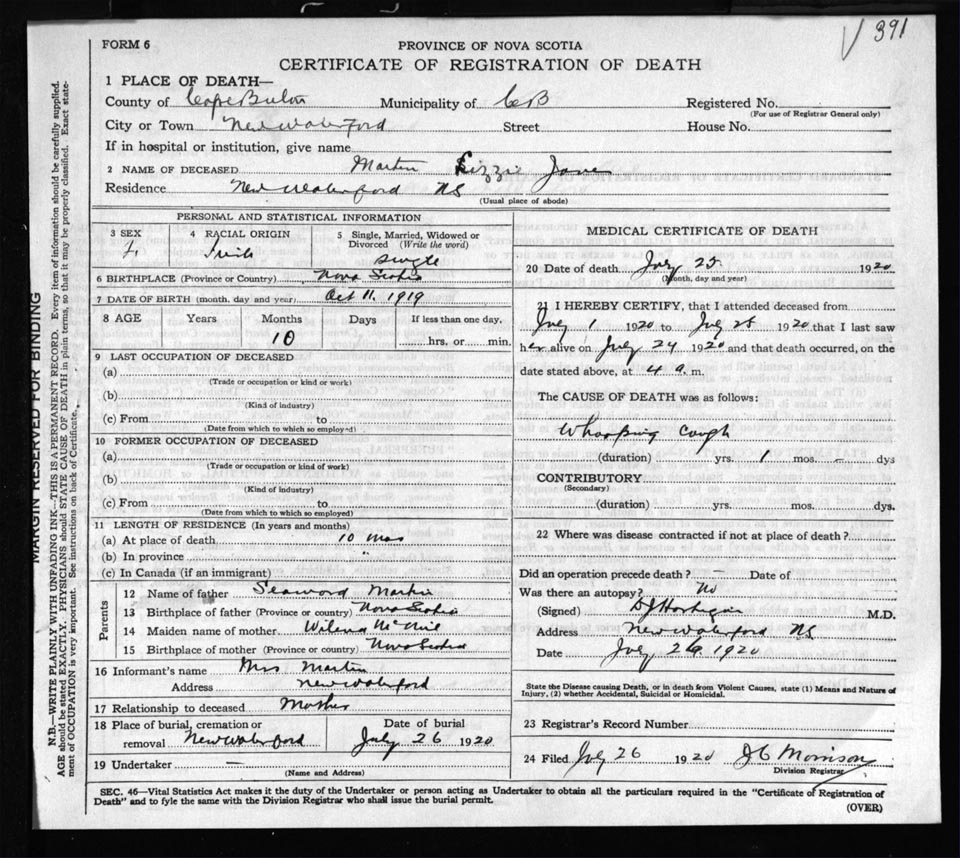 391
FORM 6
PROVINCE OF NOVA SCOTIA
CERTIFICATE OF REGISTRATION OF DEATH
1 PLACE OF DEATH—
County of Cape Breton Municipality of CB Registered No.
(For use of Registrar General only)
City or Town New Waterford Street House No.
If in hospital or institution, give name
2 NAME OF DECEASED Martin Lizzie Jane
Residence New Waterford NS
(Usual place of abode)
PERSONAL AND STATISTICAL INFORMATION
3 SEX 4 RACIAL ORIGIN 5 Single, Married, Widowed or
Divorced (Write the word)
F. single
6 BIRTHPLACE (Province or Country) Nova Scotia
7 DATE OF BIRTH (month, day and year) Oct 11. 1919
8 AGE Years Months Days If less than one day,
10 hrs. or min.
9 LAST OCCUPATION OF DECEASED
(a)
(Trade or occupation or kind or work)
(b)
(Kind of industry)
(c) From to
(Date from which to which so employed)
10 FORMER OCCUPATION OF DECEASED
(a)
(Trade or occupation or kind of work)
(b)
(Kind of industry)
(c) From to
(Date from which to which so employed)
11 LENGTH OF RESIDENCE (In years and months)
(a) At place of death 10 mos
(b) In province "
(c) In Canada (if an immigrant)
Parents
12 Name of father Seaword Martin
13 Birthplace of father (Province or country) Nova Scotia
14 Maiden name of mother McNeil
15 Birthplace of mother (Province or country) Nova Scotia
16 Informant's name Mrs Martin
Address New Waterford
17 Relationship to deceased Mother
18 Place of burial, cremation or Date of burial
removal New Waterford July 26 1920
19 Undertaker —
(Name and Address)
MEDICAL CERTIFICATE OF DEATH
20 Date of death July 25 1920
(Month, day and year)
21 I HEREBY CERTIFY, that I attended deceased from
July 1 1920 to July 25 1920 that I last saw
her alive on July 24 1920 and that death occurred, on the
date stated above, at 4 a. m.
The CAUSE OF DEATH was as follows:
Whooping Cough
(duration) yrs. 1 mos. – dys
CONTRIBUTORY
(Secondary)
(duration) yrs. mos. dys.
22 Where was disease contracted if not at place of death?
Did an operation precede death? – Date of
Was there an autopsy? No
(Signed) M.D.
Address New Waterford NS
Date July 26. 1920
State the Disease causing Death, or in death from Violent Causes, state (1) Means and Nature of
Injury, (2) whether Accidental, Suicidal or Homicidal.
23 Registrar's Record Number
24 Filed July 26 1920 J C Morrison
Division Registrar
SEC. 46—Vital Statistics Act makes it the duty of the Undertaker or person acting as Undertaker to obtain all the particulars required in the "Certificate of Registration of
Death" and to fyle the same with the Division Registrar who shall issue the burial permit.
(OVER)
MARGIN RESERVED FOR BINDING
N.B.—WRITE PLAINLY WITH UNFADING INK—THIS IS A PERMANENT RECORD. Every item of information should be carefully supplied.
AGE should be stated EXACTLY. PHYSICIANS should STATE CAUSE OF DEATH in plain terms, so that it may be properly classified. Exact state-
ment of OCCUPATION is very important. See instructions on back of Certificate.